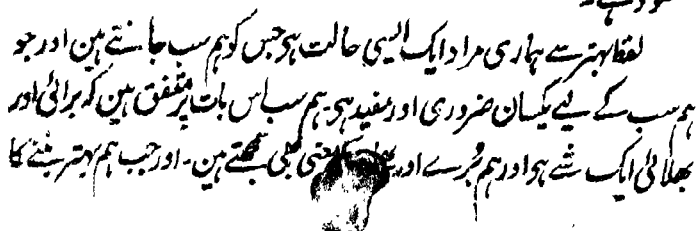 لفظ بہتر سے ہماری مراد ایک ایسی حالت ہی جس کو ہم سب جانتے ہین اور جو
ہم سب کے لیے یکسان ضروری اور مفید ہی ہم سب اس بات پر متفق ہین کہ برائی اور
بھلائی ایک شے ہی اور ہم بُرے اور معنی بھی سمجھتے ہین ۔ اور جب ہم بہتر بننے کا